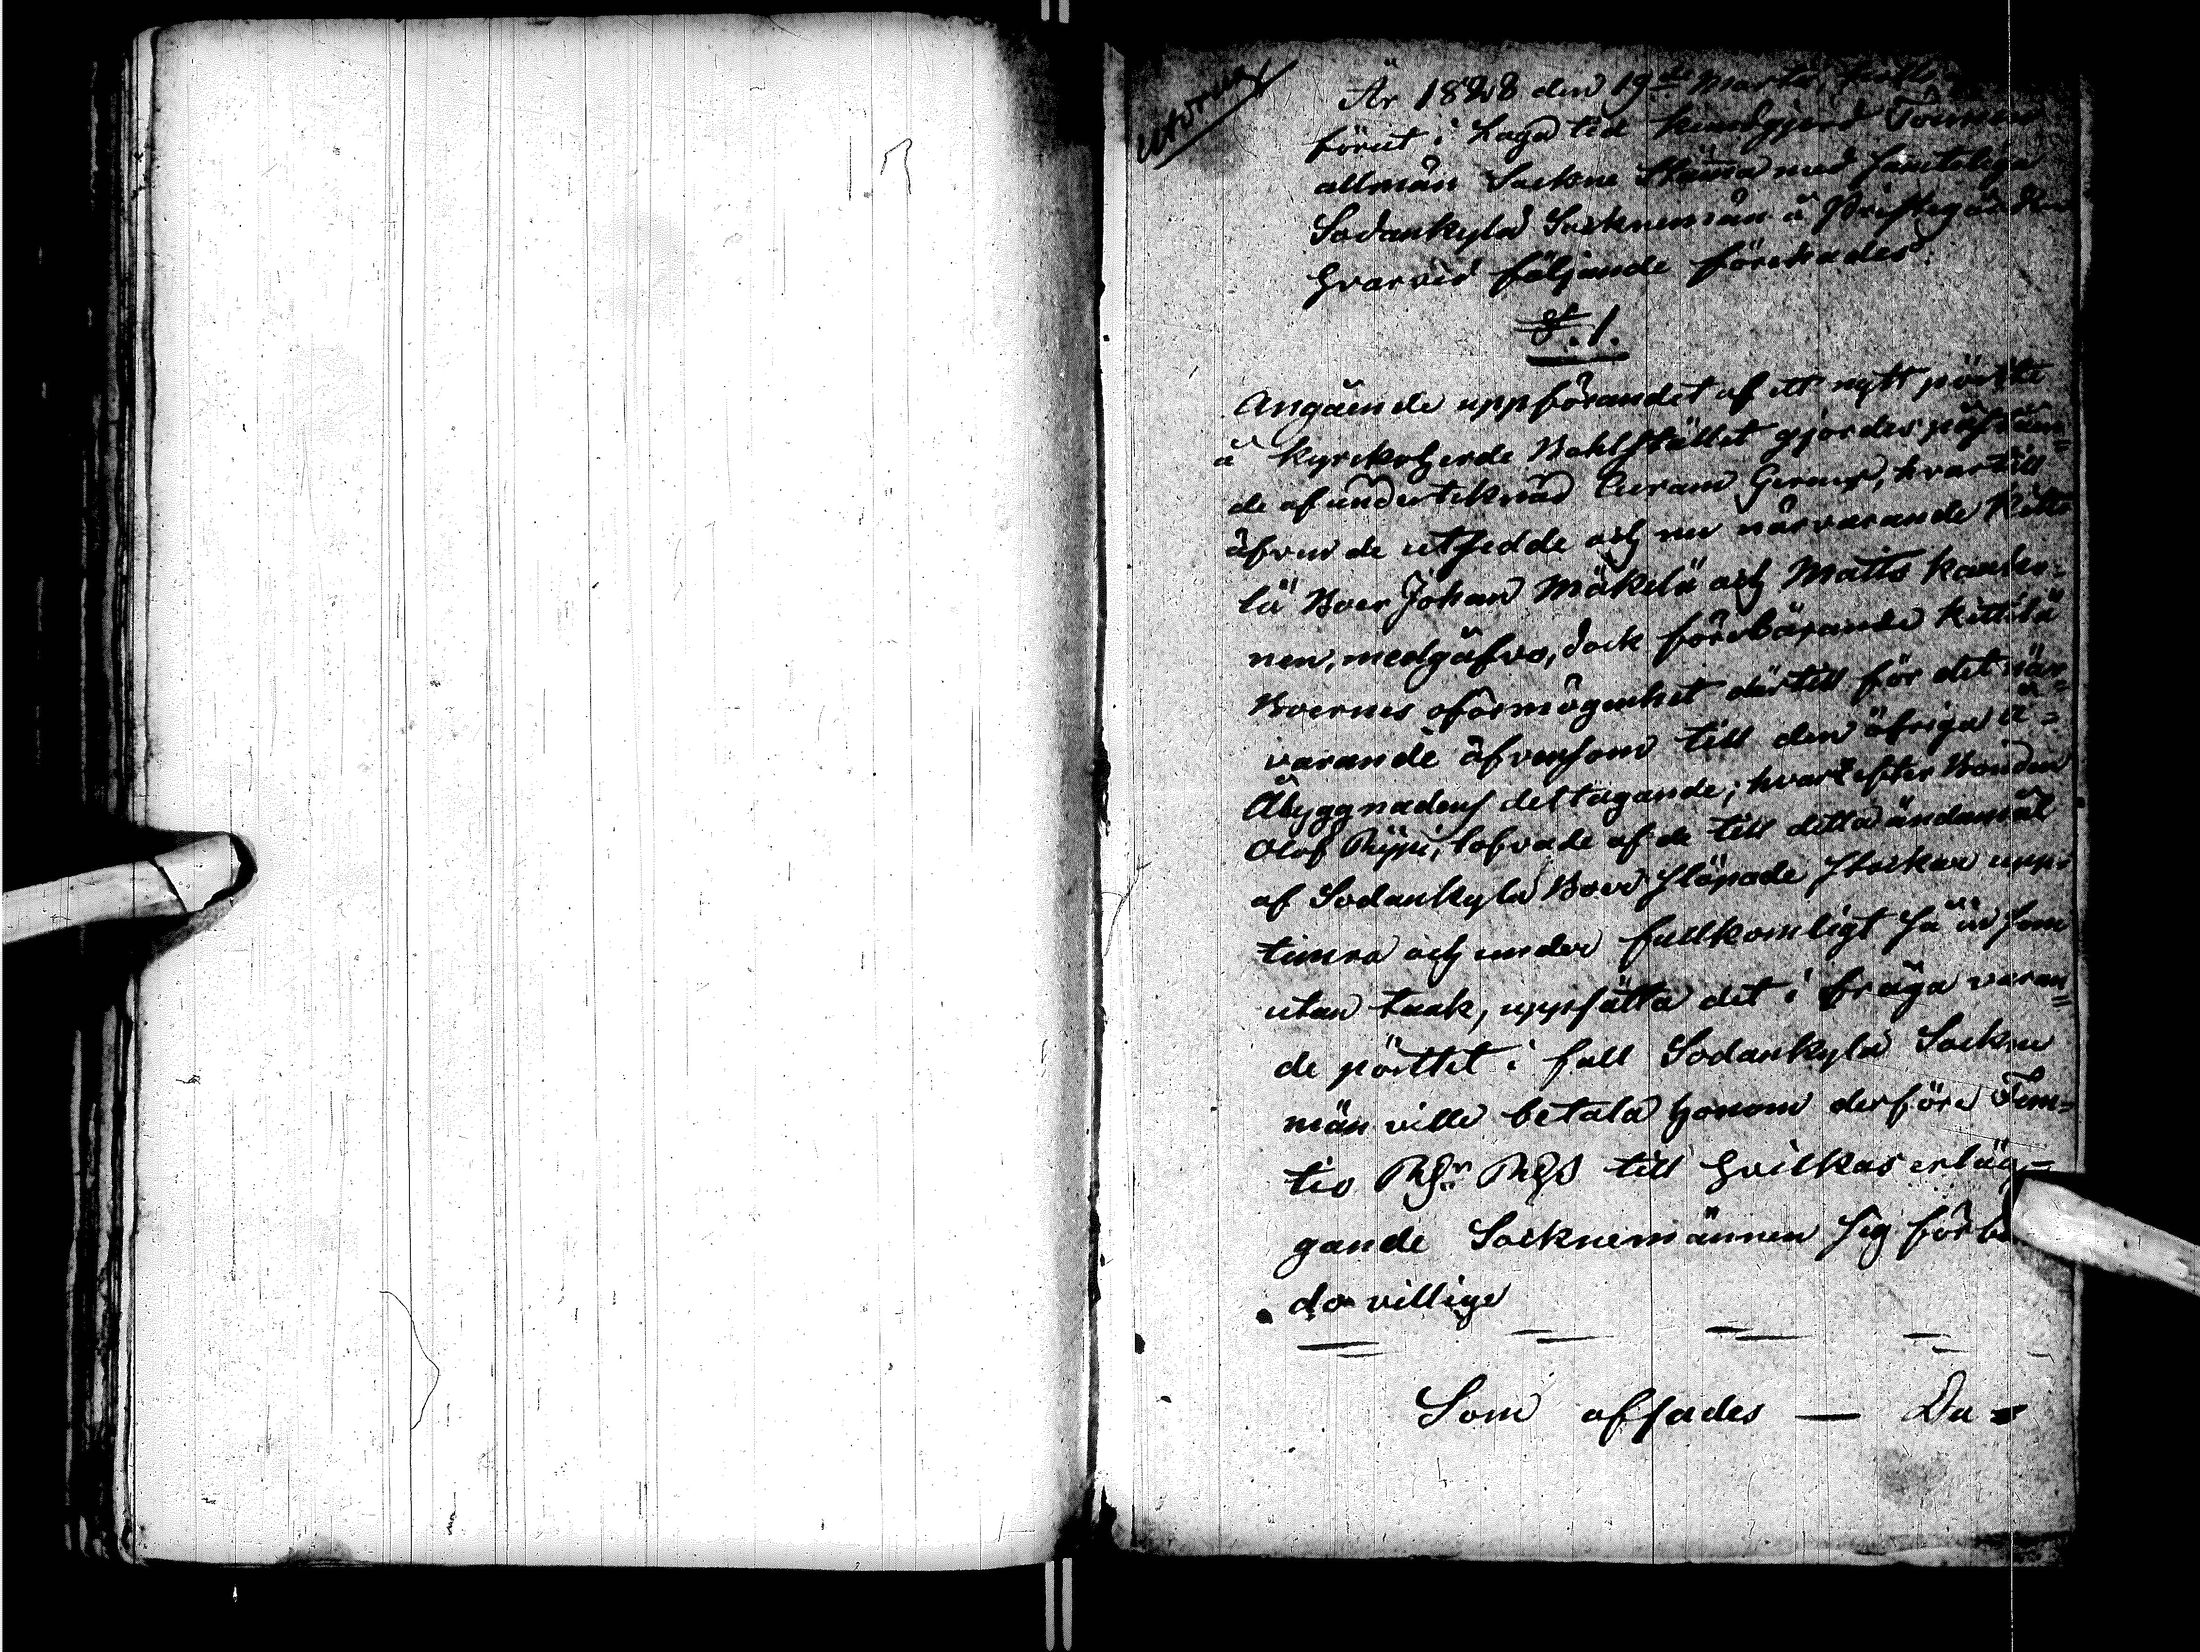 År 1828 den 19de Martii hölls
förut i Laga tid kundgjord
allmän Sockne Stämma med samtelige
Sodankylä Socknemän å Prästegården
hvarvid följande förehades.
§.1.
Angående uppförandet af ett nytt pörtte
å Kyrkoherde Bohlstället gjordes påståen=
de af undertecknad hvartill
äfven de utsedde och nu närvarande Kitti
lä Boer Johan Mäkelä och Matts
nen, medgåfvo, dock förebärande Kittilä
Boernes oförmögenhet därtill för det när=
varande äfvensom till den öfriga å=
Åbyggnadens deltagande; hvarefter Bonden
Olof lofvade af de till detta ändamål
af Sodankylä Boer släpade stockar upp
timra och under fullkomligt så väl som
utan taak, uppsätta det i fråga varan=
de pörttet i fall Sodankylä Sockne
män ville betala honom derföre Fem=
tio Rd:r Rgs till hvilkas erläg=
gande Socknemännen sig förbi
do villige
Som afsades — Da=